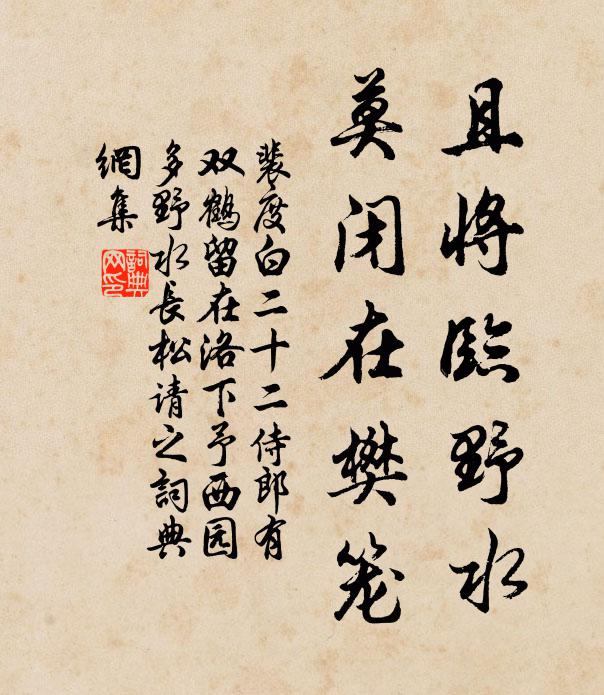 且将临野水
莫闭在樊笼
裴度白二十二侍郎有
双鹤留在洛下予西园
多野水長松请之詞典
網集
詞典網印